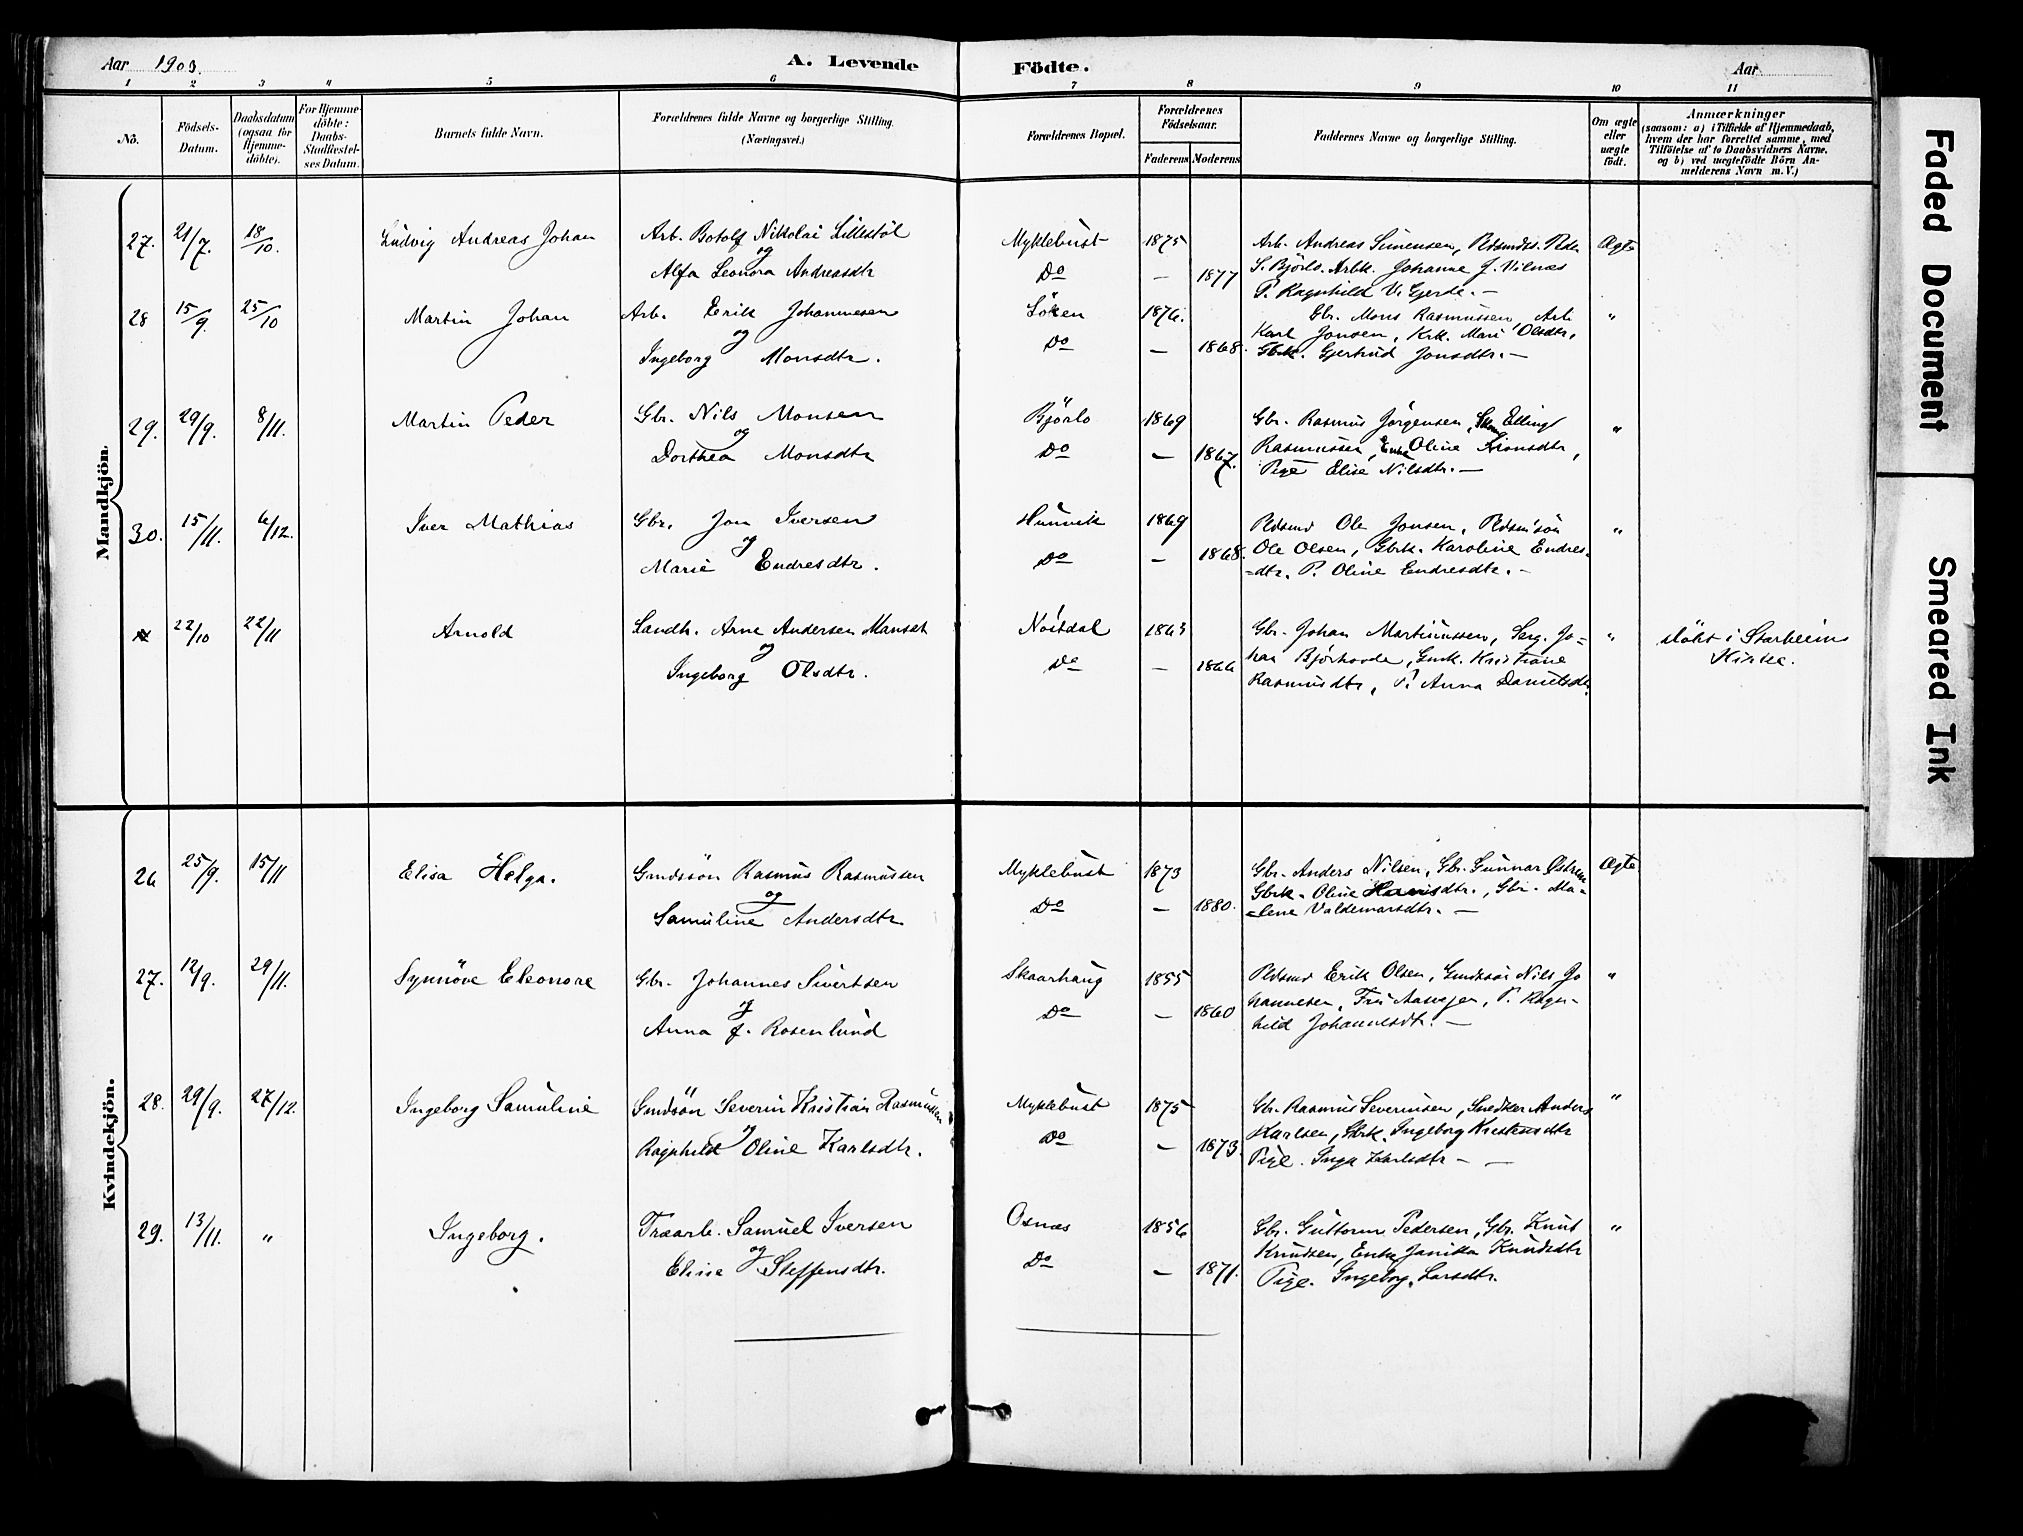 Aar 1903.
A. Levende Födte.
Aar
1 2 3 4 5 6 7 8 9 10 11
No.
Födsels-Datum.
Daabsdatum (ogsaa for Hjemme-döbte).
For Hjemme-döbte: Daabs-Stadfæstel-ses Datum.
Barnets fulde Navn.
Forældrenes fulde Navne og borgerlige Stilling. (Næringsvei.)
Forældrenes Bopæl.
Forældrenes Födselsaar.
Faderens Moderens
Faddernes Navne og borgerlige Stilling.
Om ægte eller uægte födt.
Anmærkninger
(saasom: a) i Tilfælde af Hjemmedaab, hvem der har forrettet samme, med Tilföielse af to Daabsvidners Navne, og b) ved uægtefödte Börn An-melderens Navn m. V.)
Mandkjön.
27. 21/7. 18/10. Ludvig Andreas Johan Arb. Botolf Nikolai Lillestöl Myklebust 1875 Arb. Andreas Simensen, Pdsmds. Peder Ægte
og
Alfa Leonora Andreasdtr Do — 1877 S. Björlo. Arbk. Johanne J. Vilnæs
P. Ragnhild V. Gjerde. —
28 15/9. 25/10 Martin Johan Arb. Erik Johannesen Löken 1876. Gbr. Mons Rasmussen, Arb. "
og
Karl Jonsen, Krk. Mari Olsdtr,
Ingeborg Monsdtr. Do — 1868. Gbrk. Gjertrud Jonsdtr. —
29. 29/9. 8/11. Martin Peder Gbr. Nils Monsen Björlo 1869 Gbr. Rasmus Jörgensen, Elling "
og
Dorthea Monsdtr Do — 1867. Rasmussen, Enke Oline Simonsdtr,
Pige Elise Nilsdtr. —
30. 15/11. 6/12. Iver Mathias Gbr. Jon Iversen Hunvik 1869 Pdsmd Ole Jonsen, Pdsm.sön "
og
Marie Endresdtr. Do — 1868. Ole Olsen, Gbrk. Karoline Endres-
=dtr. P. Oline Endresdtr. —
22/10 22/11 Arnold Landh. Arne Andersen Manset Nöstdal 1863 Gbr. Johan Martinussen, Serg. Jo= " döbt i Starheim
og
Ingeborg Olsdtr. Do — 1866 han Björhovde, Gmk. Kristiane Kirke.
Rasmusdtr, P. Anna Danielsdtr.
Kvindekjön.
26 25/9. 15/11 Elisa Helga. Gmdssön Rasmus Rasmussen Myklebust 1873 Gbr. Anders Nilsen, Gbr. Gunnar Östrem Ægte
og
Samuline Andersdtr Do — 1880. Gbrk. Oline Hansdtr., Gbr. Ma-
=lene Valdemarsdtr. —
27. 12/9. 29/11. Synnöve Eleonore Gbr. Johannes Sivertsen Skaarhaug 1855 Pdsmd Erik Olsen, Gmdssön Nils Jo "
og
Anna J. Rosenlund Do — 1860 hannesen, Fru Aasvejen, P. Ragn-
hild Johannesdt. —
28. 29/9. 27/12. Ingeborg Samuline Gmdsön Severin Kristian Rasmussen Myklebust 1875 Gbr. Rasmus Severinsen, Snedker Anders "
og
Ragnhild Oline Karlsdtr. Do — 1873. Karlsen, Gbrk. Ingeborg Kristensdtr
Pige. Inga Karlsdtr — —
29. 13/11. " Ingeborg. Træarb. Samuel Iversen Osnæs 1856 Gbr. Guttorm Pedersen, Gbr. Knut "
og
Elise Steffensdtr. Do — 1871. Knudsen, Enke Janika Knudsdtr
Pige. Ingeborg Larsdtr.
Faded Document
Smeared Ink